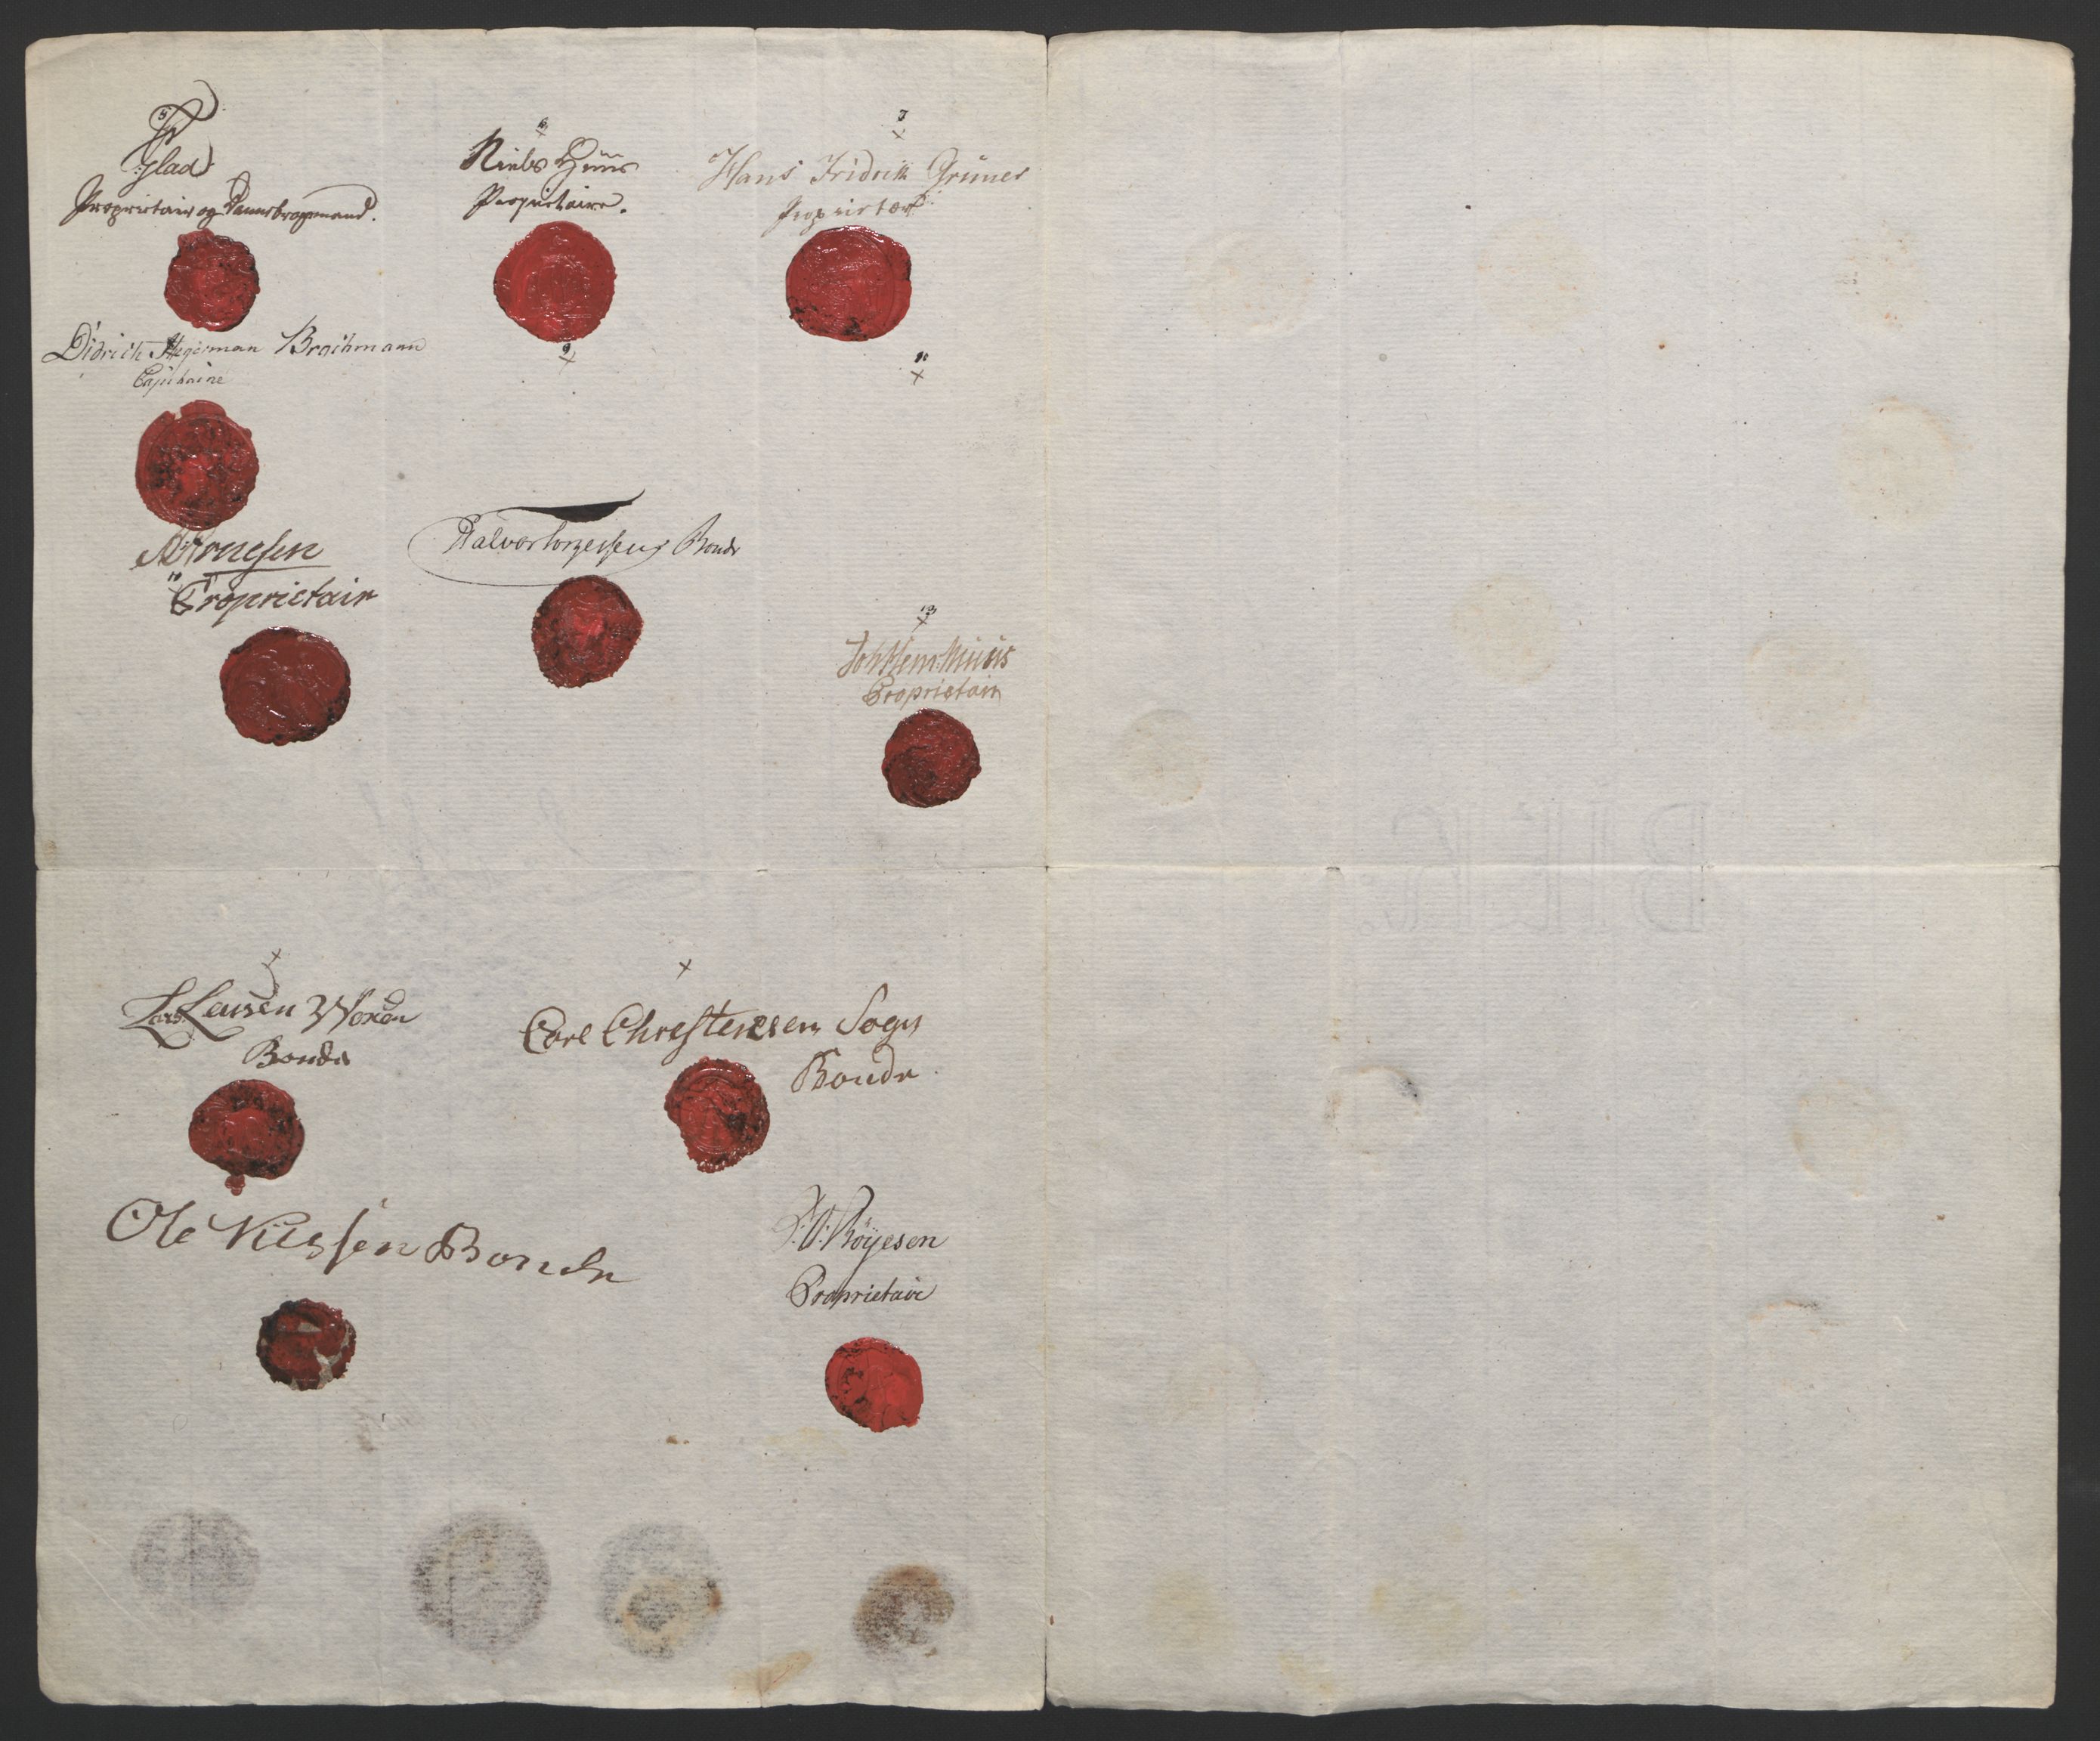 5
Flad
Proprietair og Dannebrogsmand.
6
Niels Huus
Proprietaire.
7
Hans Fridrik Grüner
Proprietær
Didrich Hegerman Brochmann
Capitaine
9
11
Arnesen
10
Proprietair
Halvor Torgersen Bonde
13
Proprietair
Lars Larsen
Bonde
Carl Chrestensen Sogn
Bonde
Ole Nielsen Bonde
Røyesen
Proprietair